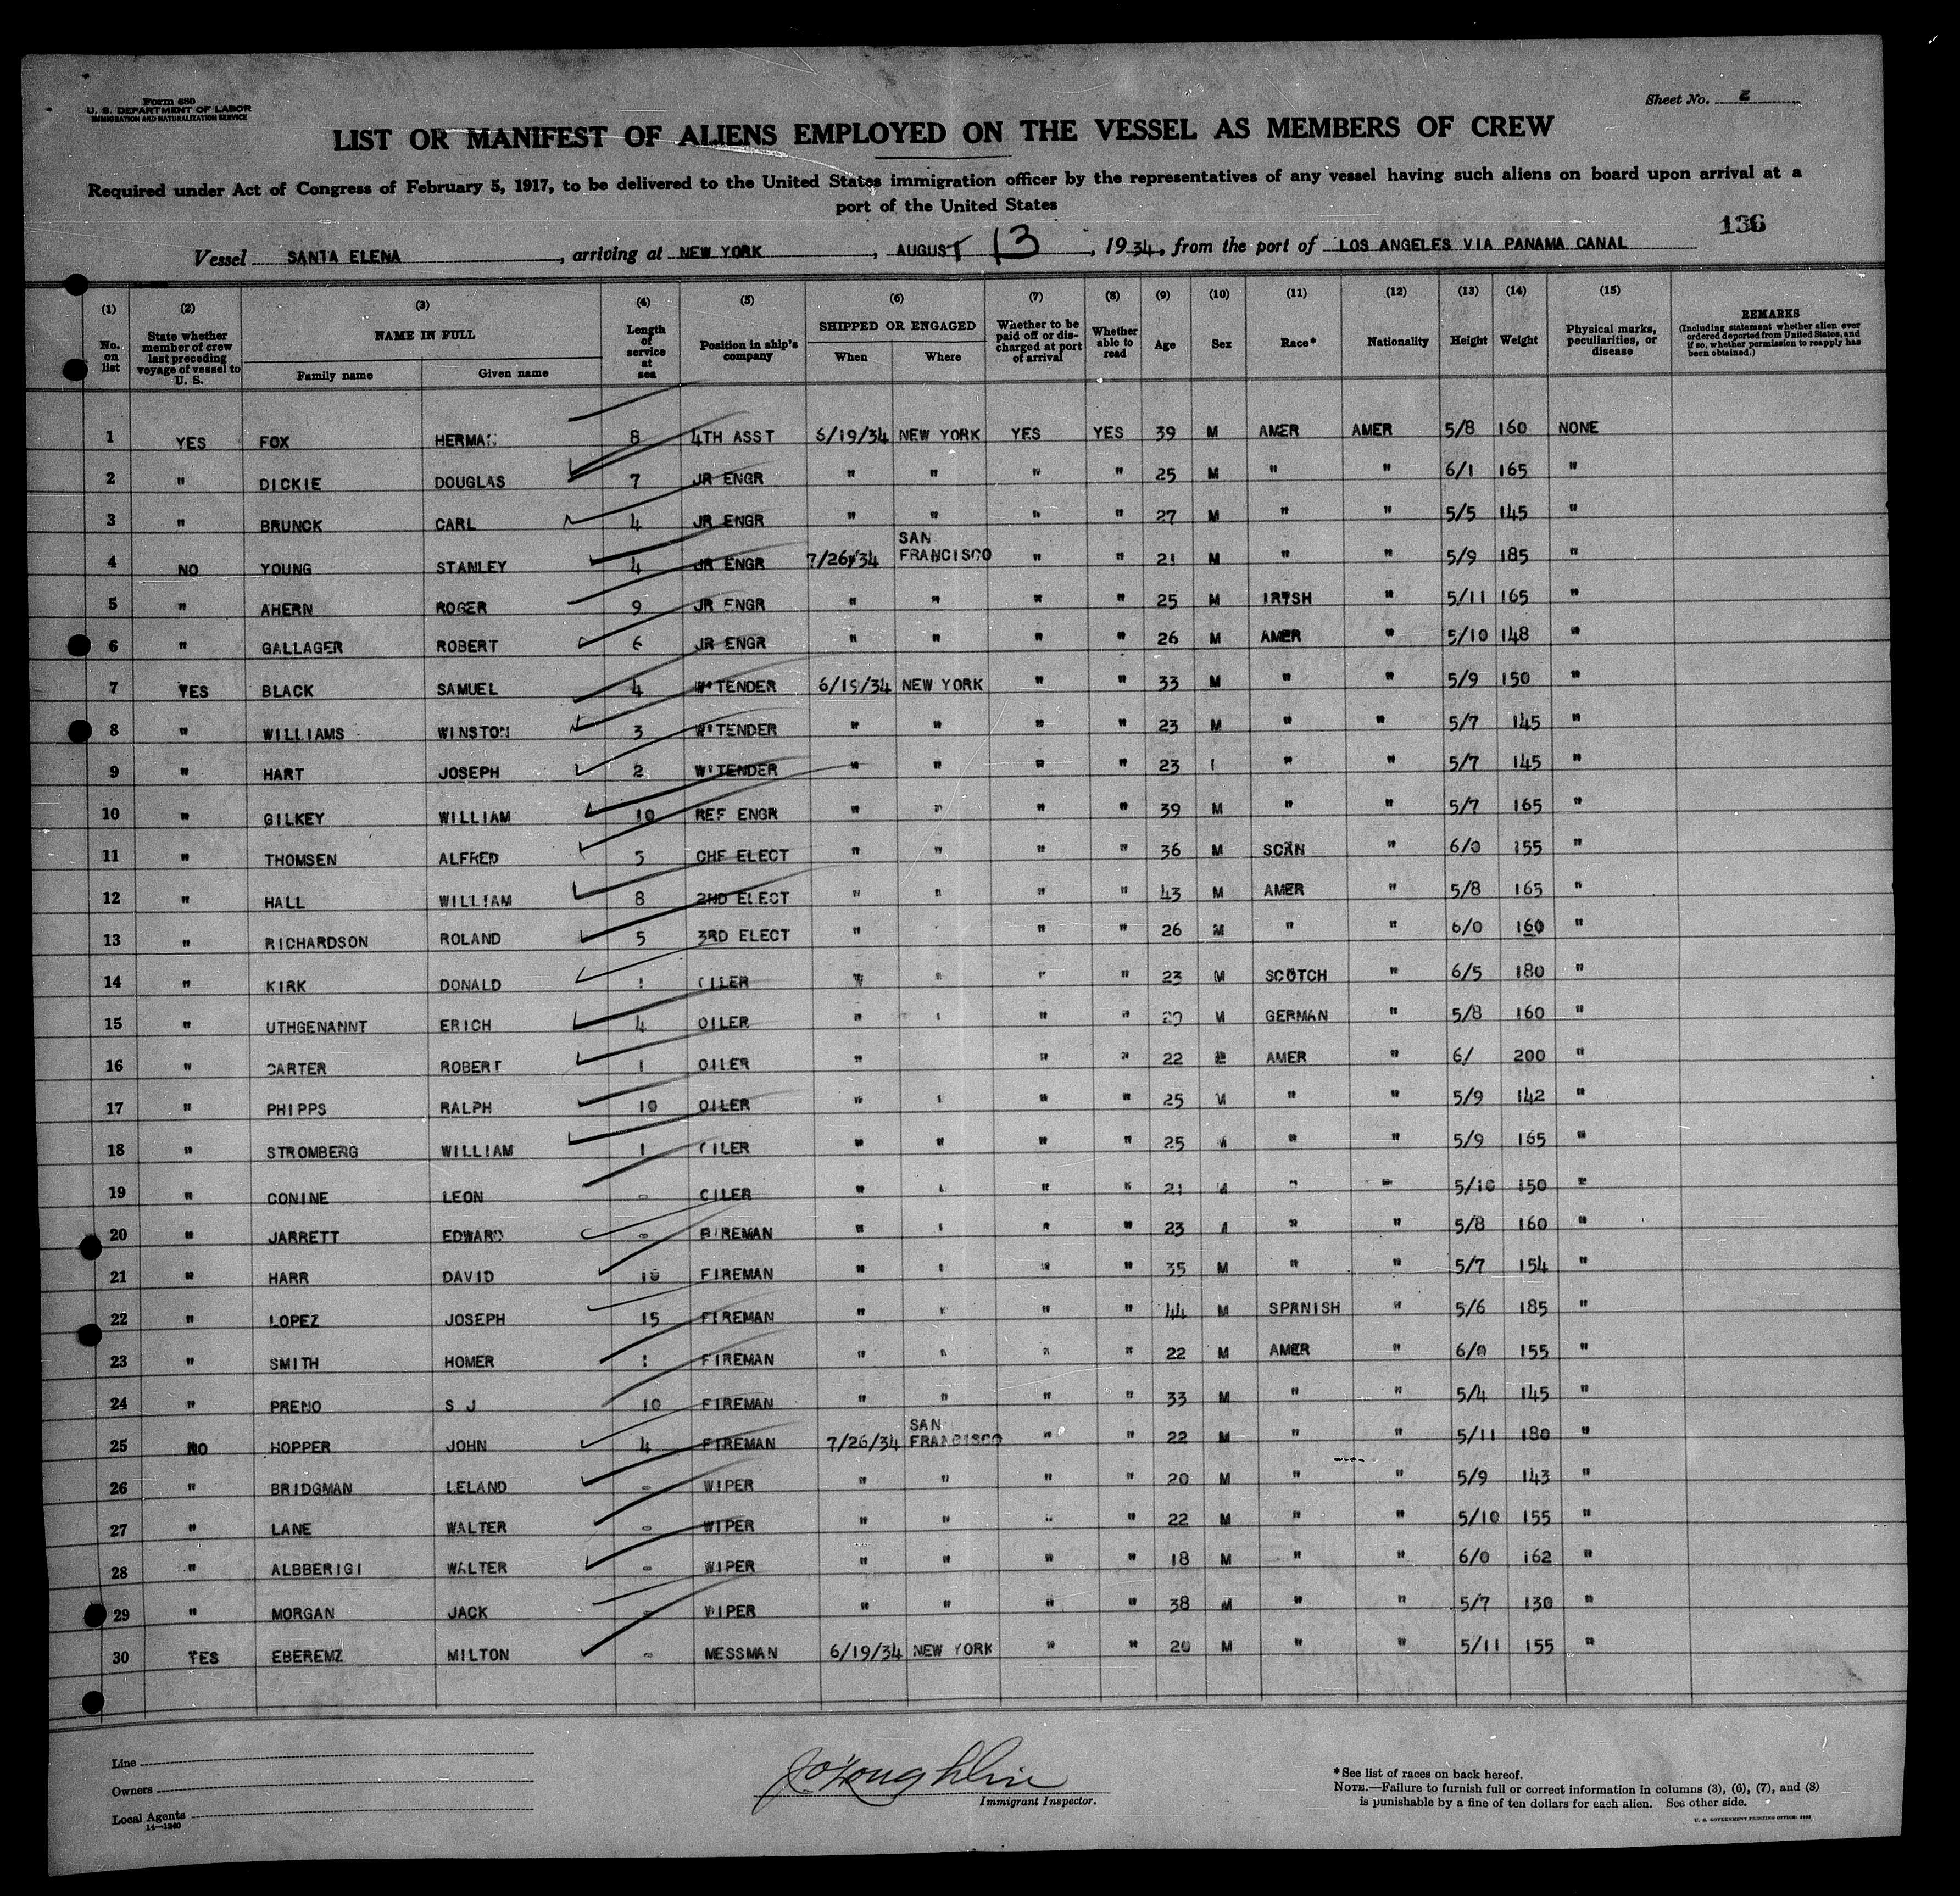 Form 680
U. S. DEPARTMENT OF LABOR
IMMIGRATION AND NATURALIZATION SERVICE
Sheet No. 2
LIST OR MANIFEST OF ALIENS EMPLOYED ON THE VESSEL AS MEMBERS OF CREW
Required under Act of Congress of February 5, 1917, to be delivered to the United States immigration officer by the representatives of any vessel having such aliens on board upon arrival at a
port of the United States
136
Vessel SANTA ELENA, arriving at NEW YORK, AUGUST 13, 1934, from the port of LOS ANGELES VIA PANAMA CANAL
(1) (2) (3) (4) (5) (6) (7) (8) (9) (10) (11) (12) (13) (14) (15)
No. on list
State whether member of crew last preceding voyage of vessel to U. S.
NAME IN FULL
Family name
Given name
Length of service at sea
Position in ship's company
SHIPPED OR ENGAGED
When
Where
Whether to be paid off or discharged at port of arrival
Whether able to read
Age
Sex
Race*
Nationality
Height
Weight
Physical marks, peculiarities, or disease
REMARKS
(Including statement whether alien ever ordered deported from United States, and if so, whether permission to reapply has been obtained.)
1 YES FOX HERMA 8 4TH ASST 6/19/34 NEW YORK YES YES 39 M AMER AMER 5/8 160 NONE
2 " DICKIE DOUGLAS 7 JR ENGR " " " " 25 M " " 6/1 165 "
3 " BRUNCK CARL 4 JR ENGR " " " " 27 M " " 5/5 145 "
4 NO YOUNG STANLEY 4 JR ENGR 7/26/34 SAN FRANCISCO " " 21 M " " 5/9 185 "
5 " AHERN ROGER 9 JR ENGR " " " " 25 M IRTSH " 5/11 165 "
6 " GALLAGER ROBERT 6 JR ENGR " " " " 26 M AMER " 5/10 148 "
7 YES BLACK SAMUEL 4 W'TENDER 6/19/34 NEW YORK " " 33 M " " 5/9 150 "
8 " WILLIAMS WINSTON 3 W'TENDER " " " " 23 M " " 5/7 145 "
9 " HART JOSEPH 2 W'TENDER " " " " 23 " " 5/7 145 "
10 " GILKEY WILLIAM 10 REF ENGR " " " " 39 M " " 5/7 165 "
11 " THOMSEN ALFRED 5 CHF ELECT " " " " 36 M SCAN " 6/0 155 "
12 " HALL WILLIAM 8 2ND ELECT " " " " 43 M AMER " 5/8 165 "
13 " RICHARDSON ROLAND 5 3RD ELECT " " " 26 M " " 6/0 160 "
14 " KIRK DONALD 1 OILER " " " " 23 M SCOTCH " 6/5 180 "
15 " UTHGENANNT ERICH 4 OILER " " " " M GERMAN " 5/8 160 "
16 " CARTER ROBERT 1 OILER " " " 22 AMER " 6/ 200 "
17 " PHIPPS RALPH 10 OILER " " " " 25 M " " 5/9 142 "
18 " STROMBERG WILLIAM 1 OILER " " " " 25 M " " 5/9 165 "
19 " CONINE LEON - OILER " " " " 21 M " " 5/10 150 "
20 " JARRETT EDWARD - FIREMAN " " " " 23 M " " 5/8 160 "
21 " HARR DAVID 10 FIREMAN " " " " 35 M " " 5/7 154 "
22 " LOPEZ JOSEPH 15 FIREMAN " " " " 44 M SPANISH " 5/6 185 "
23 " SMITH HOMER 1 FIREMAN " " " " 22 M AMER " 6/0 155 "
24 " PRENO S J 10 FIREMAN " " " " 33 M " " 5/4 145 "
25 NO HOPPER JOHN 4 FIREMAN 7/26/34 SAN FRANCISCO " " 22 M " " 5/11 180 "
26 " BRIDGMAN LELAND - WIPER " " " " 20 M " " 5/9 143 "
27 " LANE WALTER - WIPER " " " " 22 M " " 5/10 155 "
28 " ALBBERIGI WALTER - WIPER " " " " 18 M " " 6/0 162 "
29 " MORGAN JACK - WIPER " " " " 38 M " " 5/7 130 "
30 YES EBEREMZ MILTON - MESSMAN 6/19/34 NEW YORK " " 20 M " " 5/11 155 "
Line
Owners
Local Agents
14—1240
J O'Loughlin
Immigrant Inspector.
*See list of races on back hereof.
NOTE.—Failure to furnish full or correct information in columns (3), (6), (7), and (8)
is punishable by a fine of ten dollars for each alien. See other side.